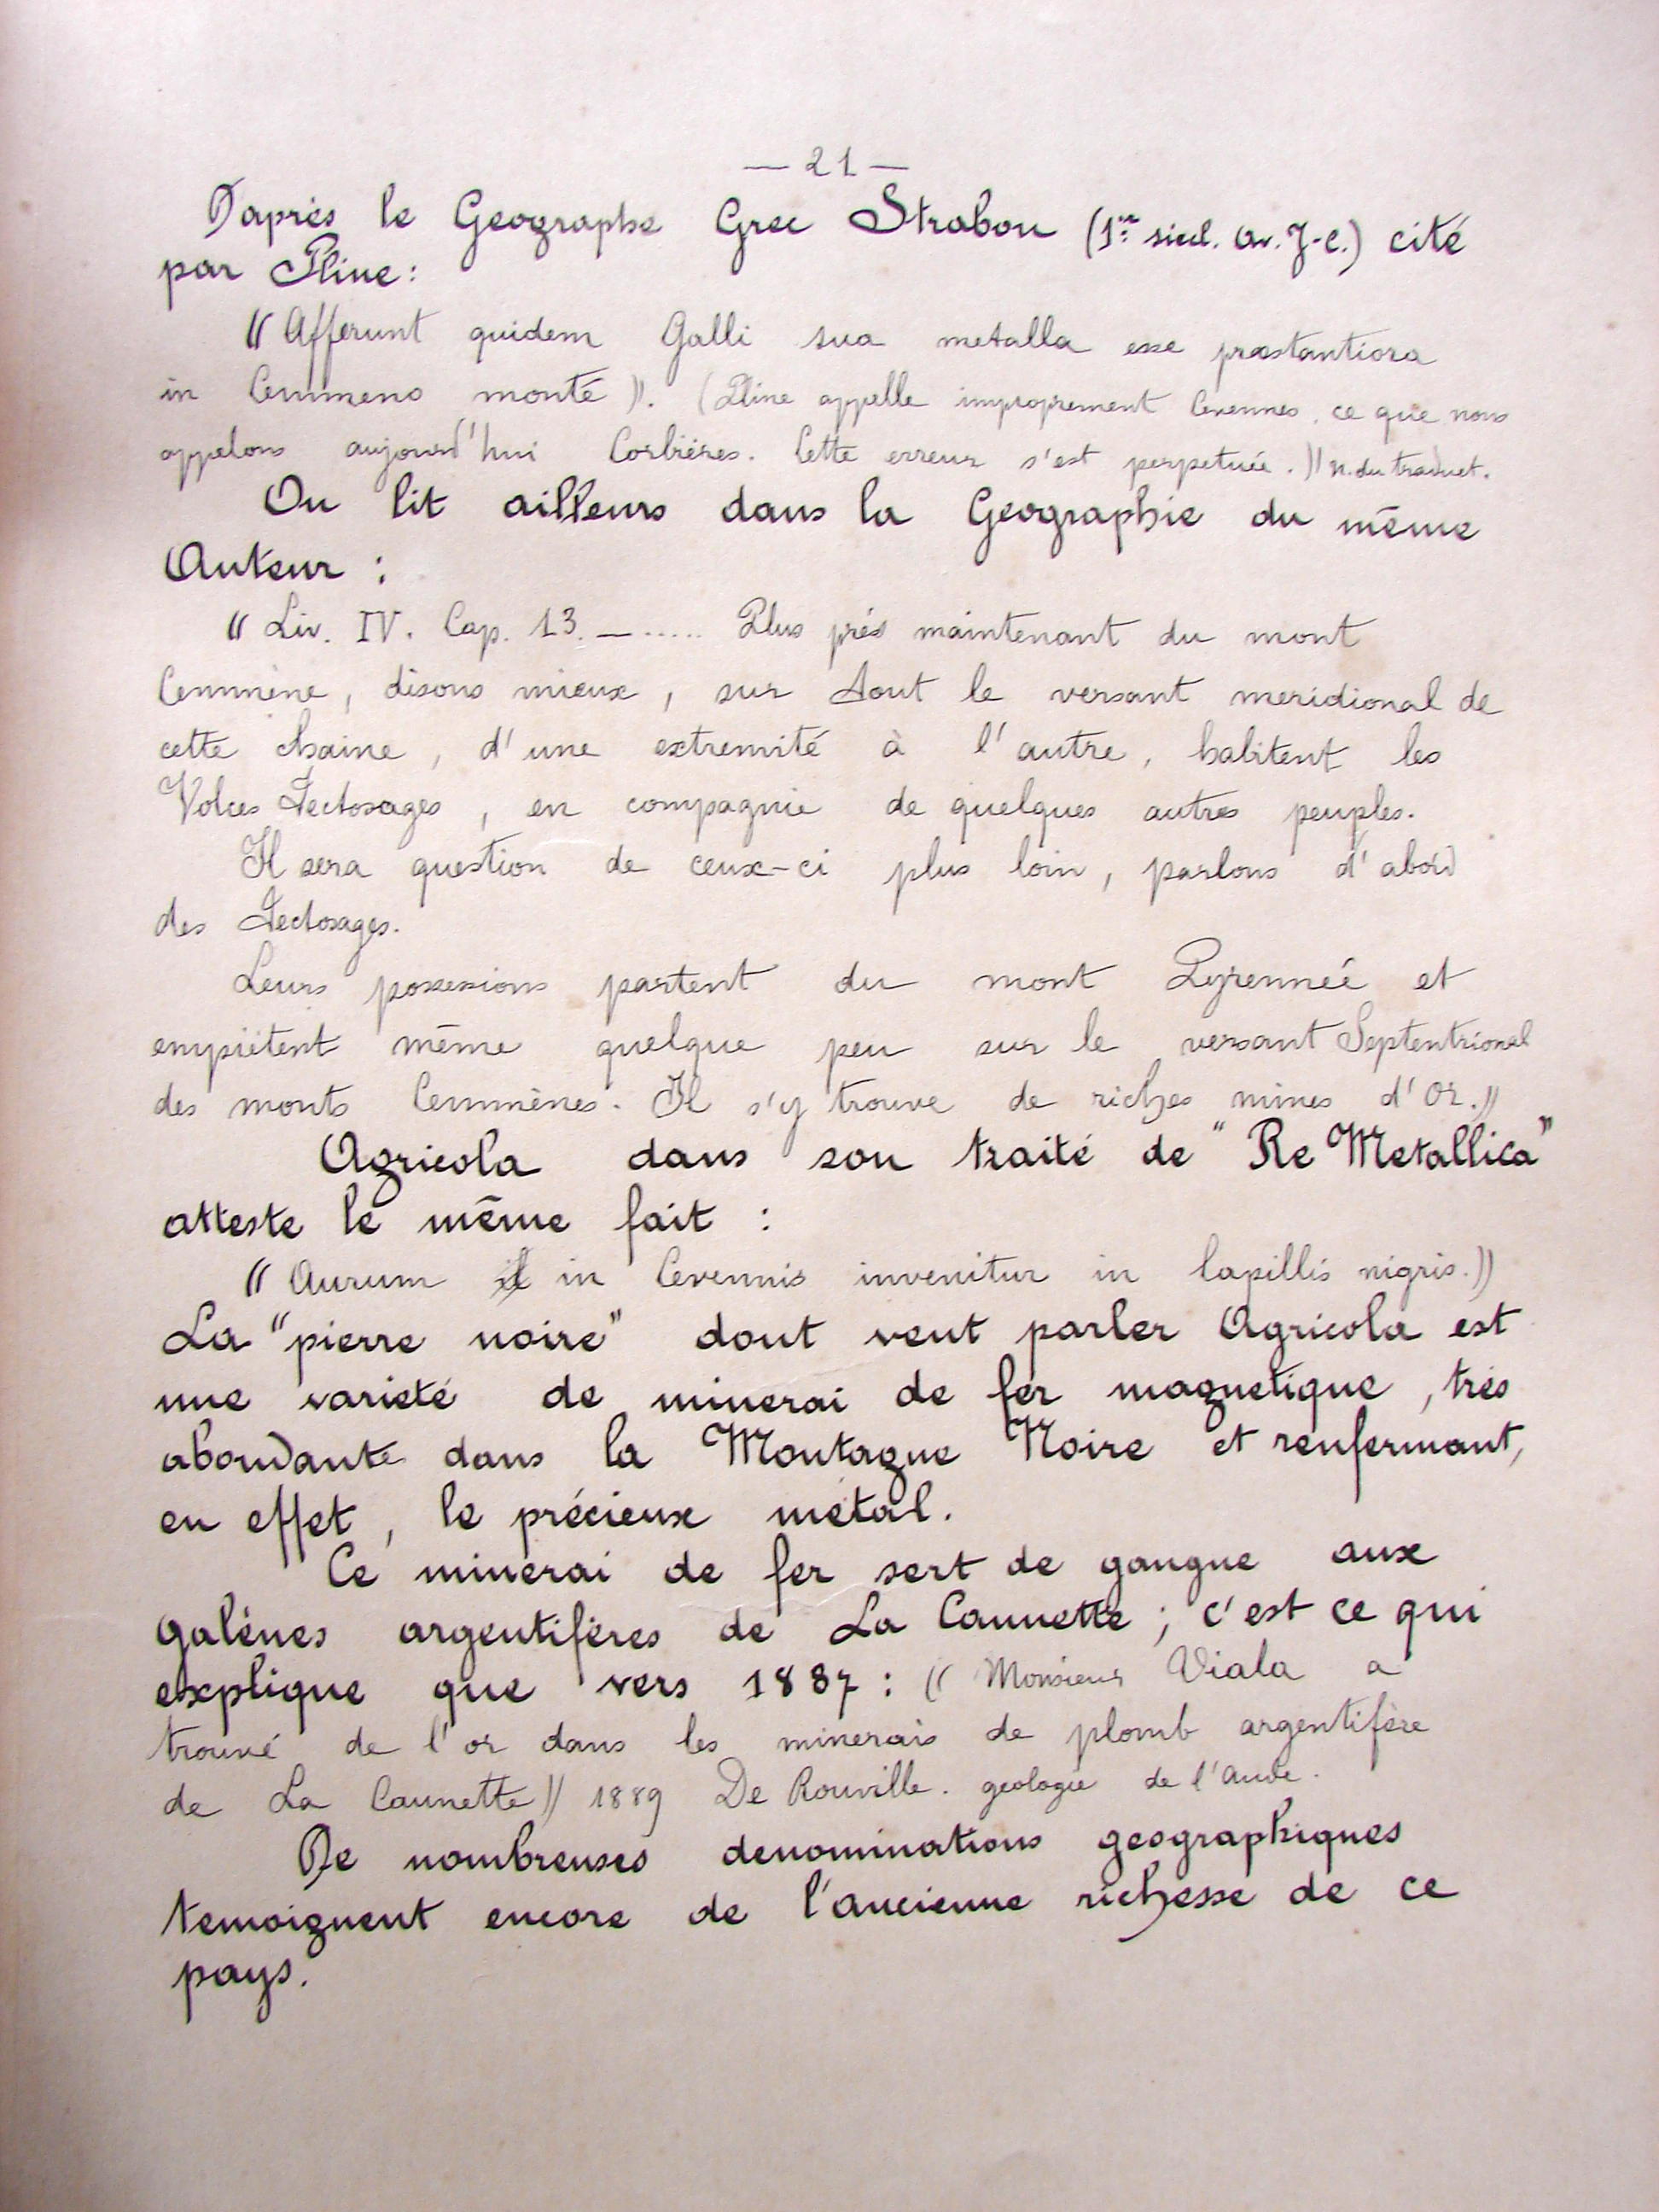 — 21 —
D'après le Geographe Grec Strabon (1er siecl. av. J-C.) cité
par Pline :
(( Afferunt quidem Galli sua metalla esse præstantiora
in Cemmeno monté )). (Pline appelle improprement Cevennes, ce que nous
appelons aujourd'hui Corbières. Cette erreur s'est perpetuée. )) n. du traduct.
On lit ailleurs dans la Geographie du même
Auteur :
(( Liv. IV. Cap. 13. — ..... Plus près maintenant du mont
Cemmène, disons mieux, sur tout le versant meridional de
cette chaine, d'une extremité à l'autre, habitent les
Volces Tectosages, en compagnie de quelques autres peuples.
Il sera question de ceux-ci plus loin, parlons d'abord
des Tectosages.
Leurs possessions partent du mont Pyrenneé et
empiètent même quelque peu sur le versant Septentrional
des monts Cemmènes. Il s'y trouve de riches mines d'Or. ))
Agricola dans son traité de "Re Metallica"
atteste le même fait :
(( Aurum in Cevennis invenitur in lapillis nigris. ))
La "pierre noire" dont veut parler Agricola est
une varieté de minerai de fer magnetique, très
abondante dans la Montagne Noire et renfermant,
en effet, le précieux métal.
Ce minerai de fer sert de gangue aux
galènes argentifères de La Caunette ; c'est ce qui
explique que vers 1887 : (( Monsieur Viala a
trouvé de l'or dans les minerais de plomb argentifère
de La Caunette )) 1889 De Rouville. geologie de l'Aude.
De nombreuses denominations geographiques
temoignent encore de l'ancienne richesse de ce
pays.